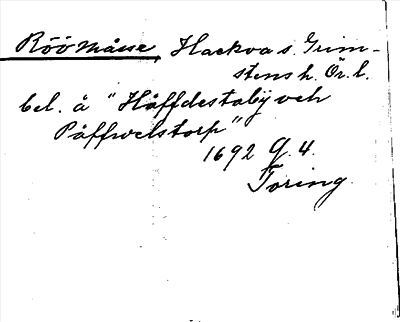 Röö Måsse, Hackvad s. Grim-
stens h. Ör. l.
bel. å "Håffdestaby och
Påffwelstorp"
1692 Q. 4.
Toring.